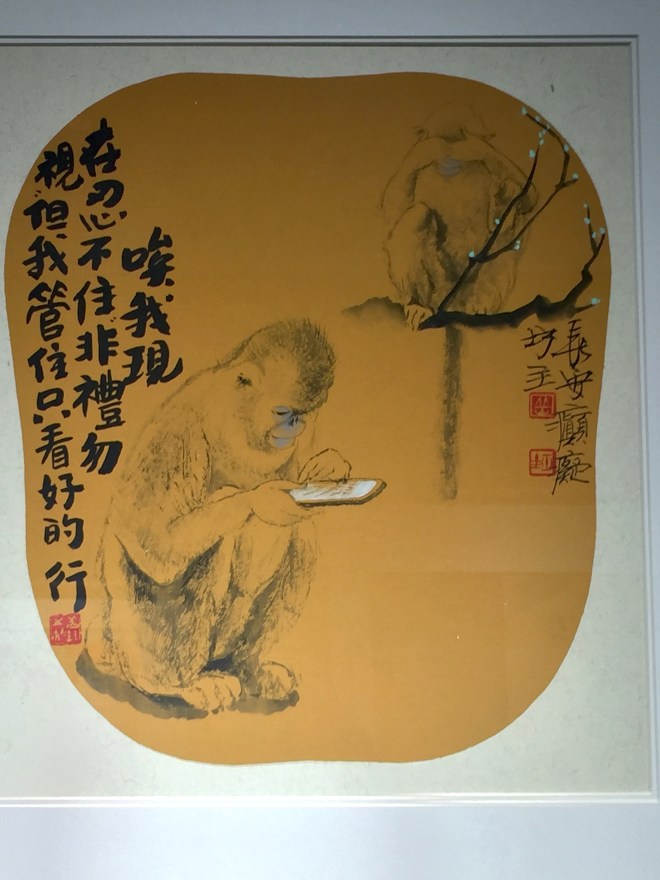 唉我現
在忍不住非禮勿
視但我管住只看好的行
長安癲癡
坊主